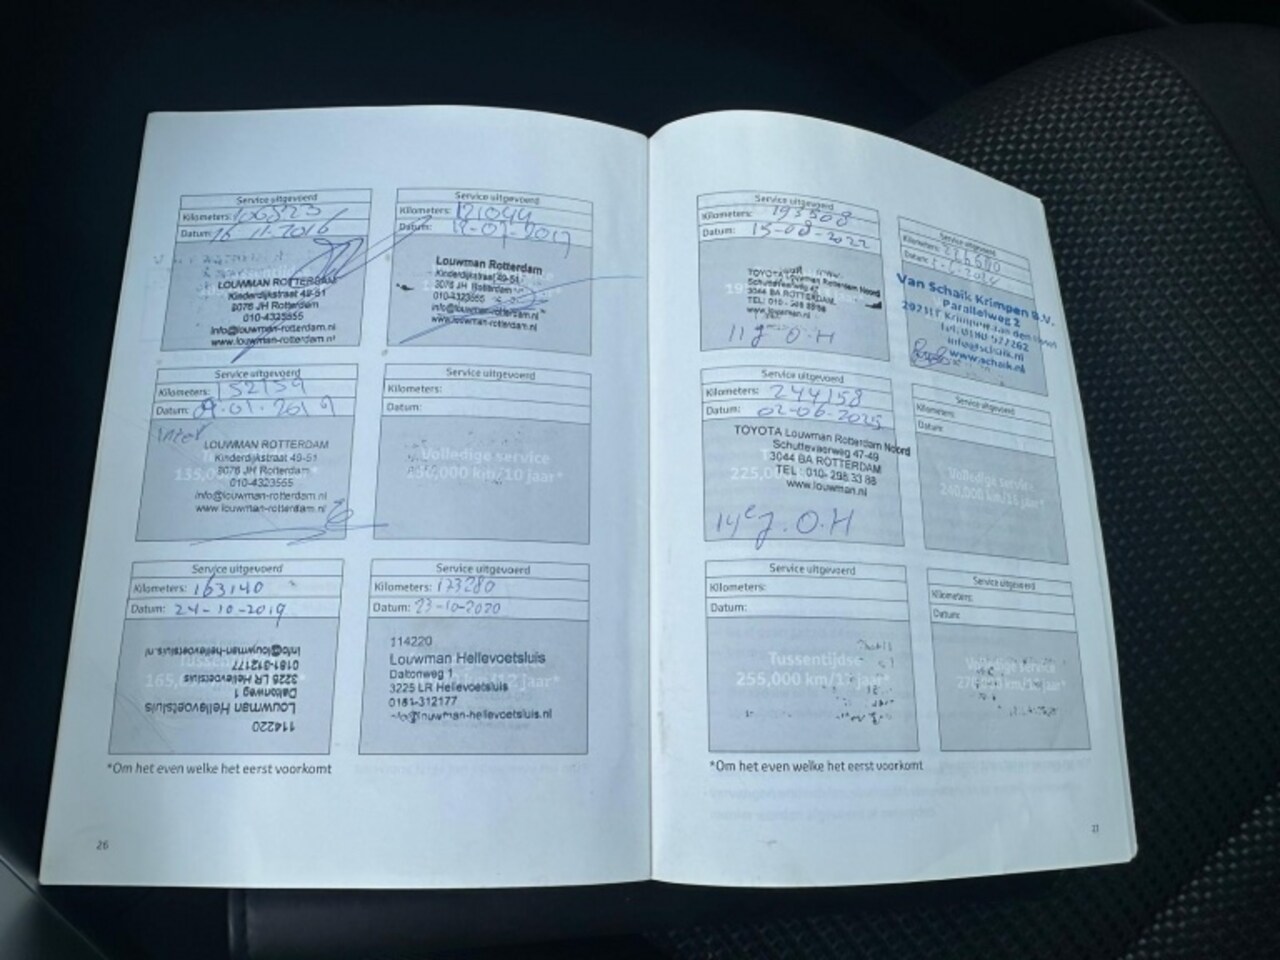 Service uitgevoerd
Kilometers: 106823
Datum: 16-11-2016
LOUWMAN ROTTERDAM
Kinderdijkstraat 49-51
3076 JH Rotterdam
010-4323555
info@louwman-rotterdam.nl
www.louwman-rotterdam.nl
Service uitgevoerd
Kilometers: 121044
Datum:
Louwman Rotterdam
Kinderdijkstraat 49-51
3076 JH Rotterdam
010-4323555
www.louwman-rotterdam.nl
Service uitgevoerd
Kilometers: 152159
Datum: 09-01-2019
LOUWMAN ROTTERDAM
Kinderdijkstraat 49-51
3076 JH Rotterdam
010-4323555
info@louwman-rotterdam.nl
www.louwman-rotterdam.nl
Service uitgevoerd
Kilometers:
Datum:
Volledige service
km/10 jaar*
Service uitgevoerd
Kilometers: 163140
Datum: 24-10-2019
114220
Louwman Hellevoetsluis
Daltonweg 1
3225 LR Hellevoetsluis
0181-312177
info@louwman-hellevoetsluis.nl
Service uitgevoerd
Kilometers: 173280
Datum: 23-10-2020
114220
Louwman Hellevoetsluis
Daltonweg 1
3225 LR Hellevoetsluis
0181-312177
info@louwman-hellevoetsluis.nl
*Om het even welke het eerst voorkomt
26
Service uitgevoerd
Kilometers: 195508
Datum: 15-08-2022
TOYOTA Louwman Rotterdam Noord
Schuttevaerweg 47
3044 BA ROTTERDAM
www.louwman.nl
11 j O.H
Service uitgevoerd
Kilometers:
Datum:
Van Schaik Krimpen B.V.
Parallelweg 2
info@schaik.nl
www.schaik.nl
Service uitgevoerd
Kilometers: 244158
Datum: 02-06-2025
TOYOTA Louwman Rotterdam Noord
Schuttevaerweg 47-49
3044 BA ROTTERDAM
TEL: 010- 298 33 88
www.louwman.nl
225,000
14e j. O.H
Service uitgevoerd
Kilometers:
Datum:
Volledige service
240,000 km/16 jaar*
Service uitgevoerd
Kilometers:
Datum:
Tussentijdse
255,000 km/17 jaar*
Service uitgevoerd
Kilometers:
Datum:
Volledige service
*Om het even welke het eerst voorkomt